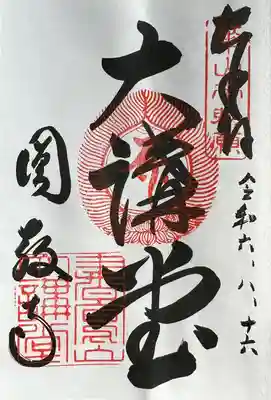 奉拝
令和六、八、十六
大講堂
圓教寺